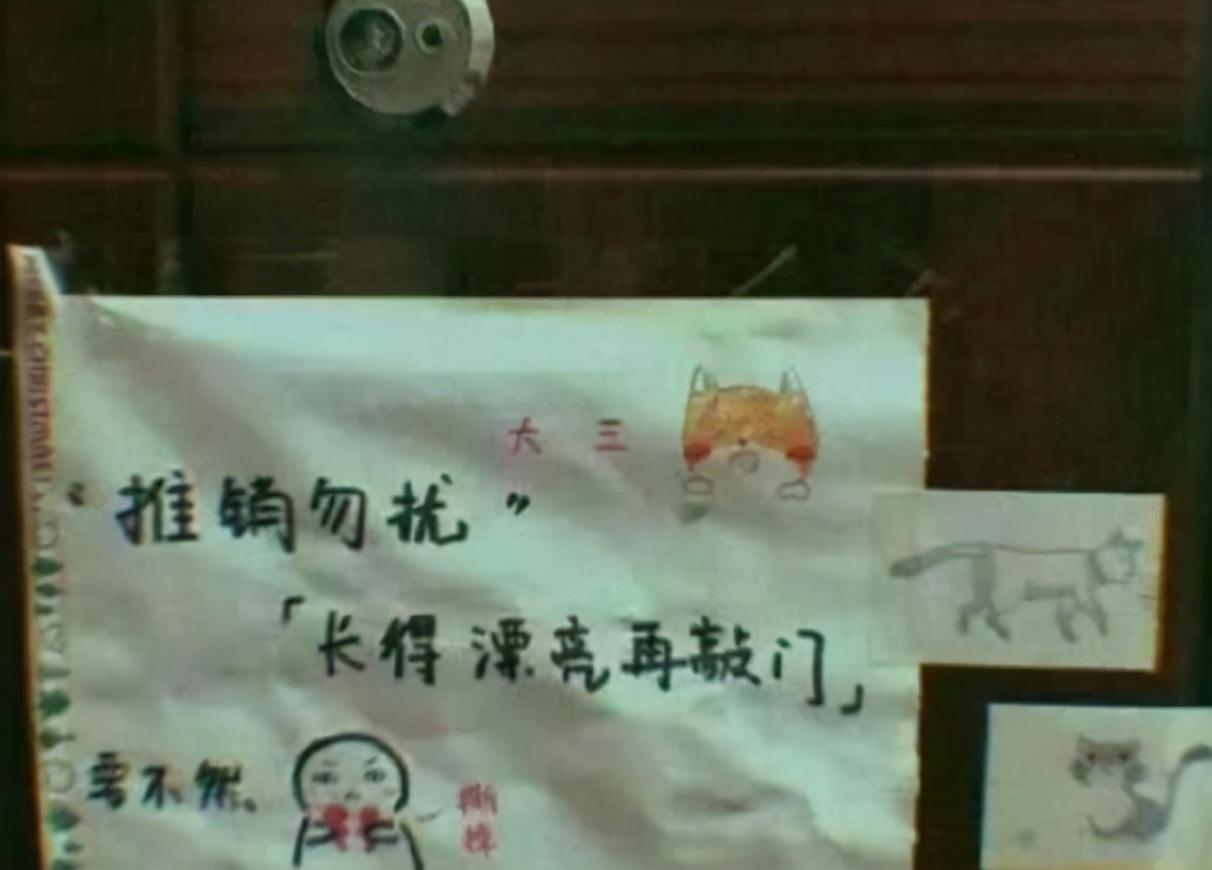 大 三
“推销勿扰”
「长得漂亮再敲门」
要不然
撕
掉